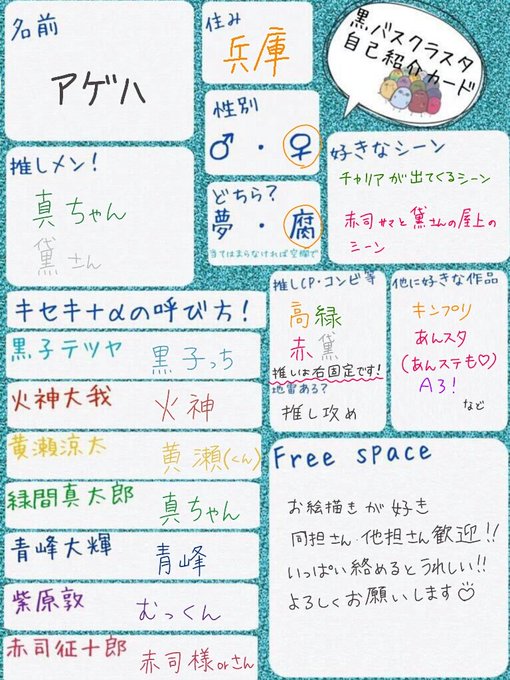 黒バスクラスタ
自己紹介カード
名前
アゲハ
住み
兵庫
性別
♂・♀
どちら?
夢・腐
当てはまらなければ空欄で
推しメン!
真ちゃん
黛さん
好きなシーン
チャリアが出てくるシーン
赤司サマと黛さんの屋上の
シーン
キセキ+αの呼び方!
黒子テツヤ 黒子っち
火神大我 火神
黄瀬涼太 黄瀬(くん)
緑間真太郎 真ちゃん
青峰大輝 青峰
紫原敦 むっくん
赤司征十郎 赤司様orさん
推しCP・コンビ等
高緑
赤黛
推しは右固定です!
地雷ある?
推し攻め
他に好きな作品
キンプリ
あんスタ
(あんステも♡)
A3!
など
Free space
お絵描きが好き
同担さん・他担さん歓迎!!
いっぱい絡めるとうれしい!!
よろしくお願いします